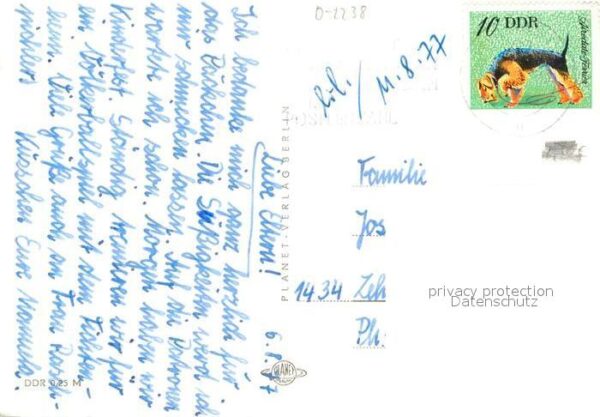 0-2238
10 DDR
Airedale-Terrier
erl. / 11.8.77
6.8.77
Liebe Eltern!
Ich bedanke mich ganz herzlich für
das Päckchen. Die Süßigkeiten werd ich
mir schmecken lassen. Auf die
warte ich schon. Morgen haben wir
Ständig trainieren wir für
ein Völkerballspiel mit dem
Viele Grüße auch an Frau
Küsschen Eure
Familie
Jos
1434 Zeh
Ph.
privacy protection
Datenschutz
PLANET-VERLAG BERLIN
PLANET
DDR 0,25 M